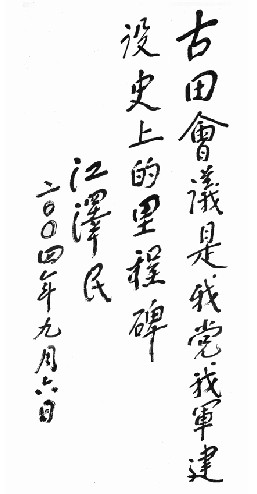 古田會議是我党、我軍建
设史上的里程碑
江澤民
二〇〇四年九月六日